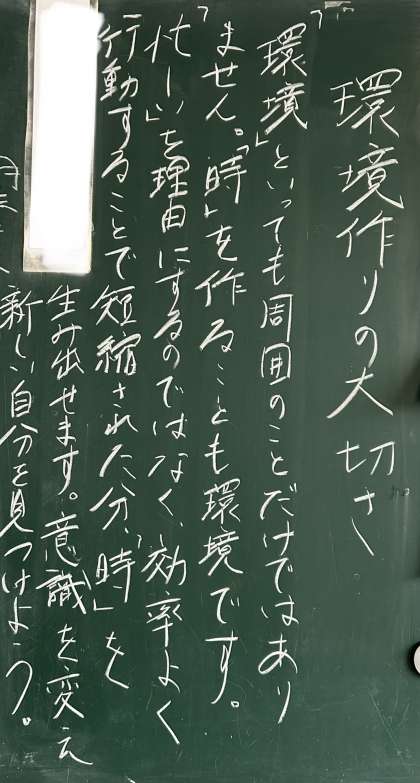 環境作りの大切さ
「環境」といっても周囲のことだけではあり
ません。「時」を作ることも環境です。
「忙しい」を理由にするのではなく、効率よく
行動することで短縮された分、「時」を
生み出せます。意識を変え
新しい自分を見つけよう。